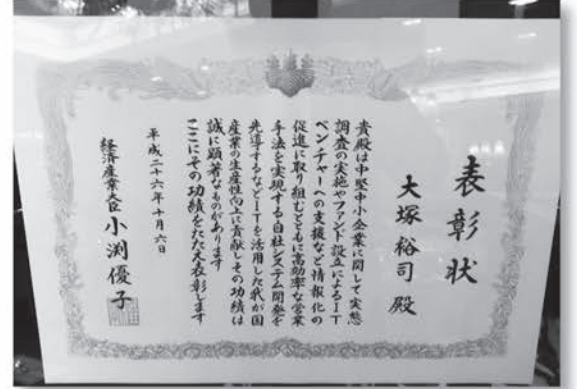 表彰状
大塚裕司殿
貴殿は中堅中小企業に関して実態
調査の実施やファンド設立によるIT
ベンチャーへの支援など情報化の
促進に取り組むとともに高効率な営業
手法を実現する自社システム開発を
先導するなどITを活用した我が国
産業の生産性向上に貢献しその功績は
誠に顕著なものがあります
ここにその功績をたたえ表彰します
平成二十六年十月六日
経済産業大臣 小渕優子